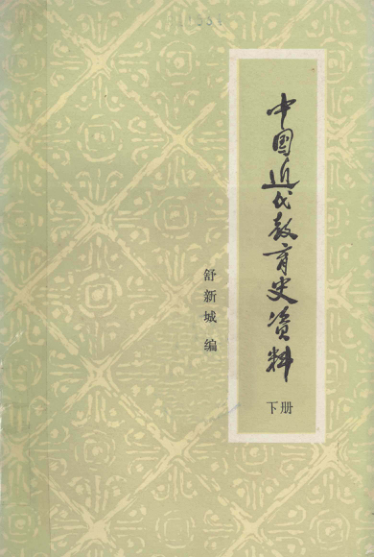 中国近代教育史资料
下册
舒新城 编